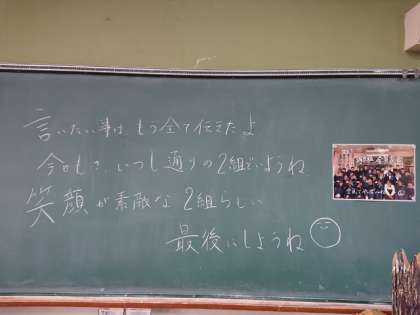 言いたい事は、もう全て伝えたよ
今日も、いつも通りの2組でいようね
笑顔が素敵な2組らしい
最後にしようね